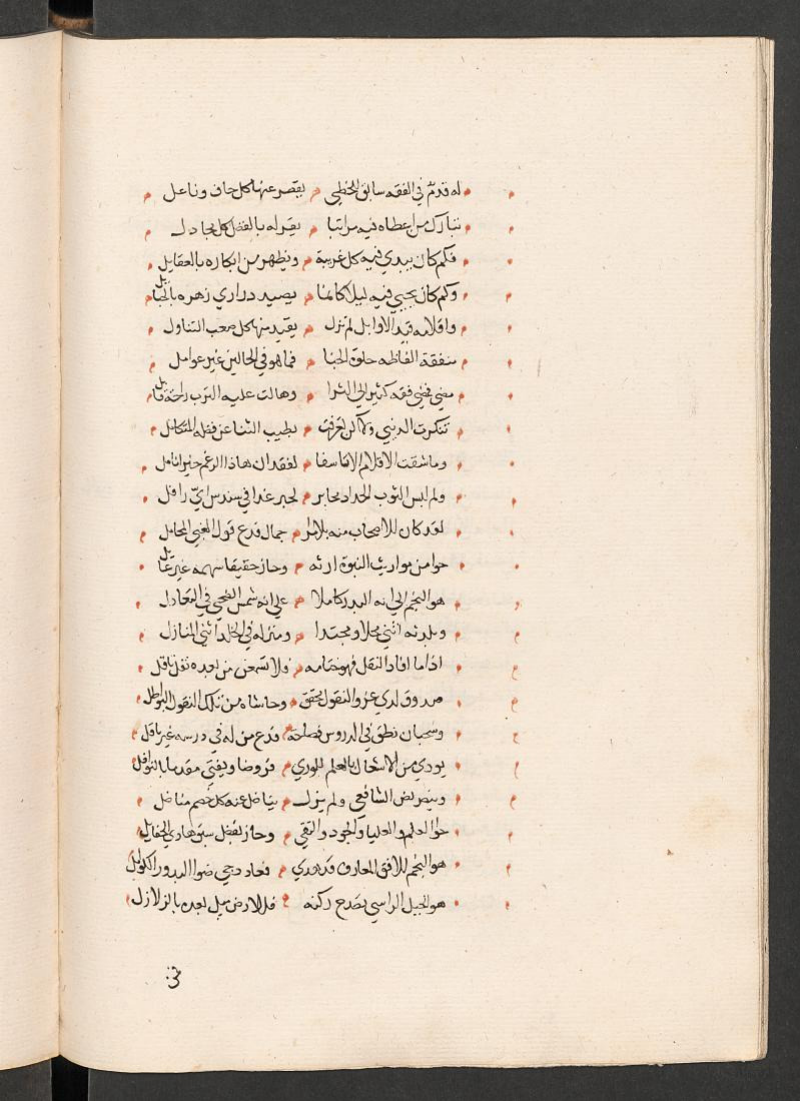 له قدم في الفقه سابق الخطى يقصر عنها كل حاف وناعل
تبارك من اعطاه فيه مراتبا يقر له بالفضل كل مجادل
فكم كان يبدي فيه كل غريبة ويظهر من ابكاره بالعقايل
وكم كان يحيي فيه ليلا كانما يصيد دراري زهره بالحبايل
واقلامه قيد الاوابل لم تزل يقيد منها كل صعب التناول
مثقفة الفاظه حلوة الجنا فما هو في الحالين غير عوامل
مضى فمضى فقه كثير الى الثرا وهالت عليه الترب راحة قابل
تنكرت الدنيى ولاكن تعرفت بطيب الثنا عن فضله المتكامل
وما شقت الاقلام الا تاسفا لفقدان هاذا الرغم خير انامل
ولم البس الثوب الحداد محابر لحبر غدا في سندس اي رافل
لقد كان للاصحاب منه بلا مرا جمال فدع قول الغبي المحامل
حوا من مواريث النبوة ارثه وحاز حقيقا سهمه غير عايل
هو النجم الى انه البدر كاملا على انه شمس الضحى في التعادل
وبلدته اسنى محلا ومحتدا ومنزله في الخلد اسنى المنازل
اذا ما افاد النقل فهو ختامه ولا تسمعن من بعده نقل ناقل
صدوق لدي عزو النقول محقق وحاشاه من تلك النقول البواطل
وسحبان نطق في الدروس فصاحة فدع من له في درسه غير باقل
يودي من الاشغال بالعلم للورى فروضا ويفتي مقدما بالنوافل
وينصر نص الشافعي ولم يزل يناضل عنه كل خصم مناضل
حوا العلم والعليا والجود والتقى وحاز بفضل سبق هادي المحافل
هو النجم للافق المعارف قد هدي فعاد دجي ضوا البدور الكوامل
هو الجبل الراسي تصدع ركنه فللارض ميل بعده بالزلازل